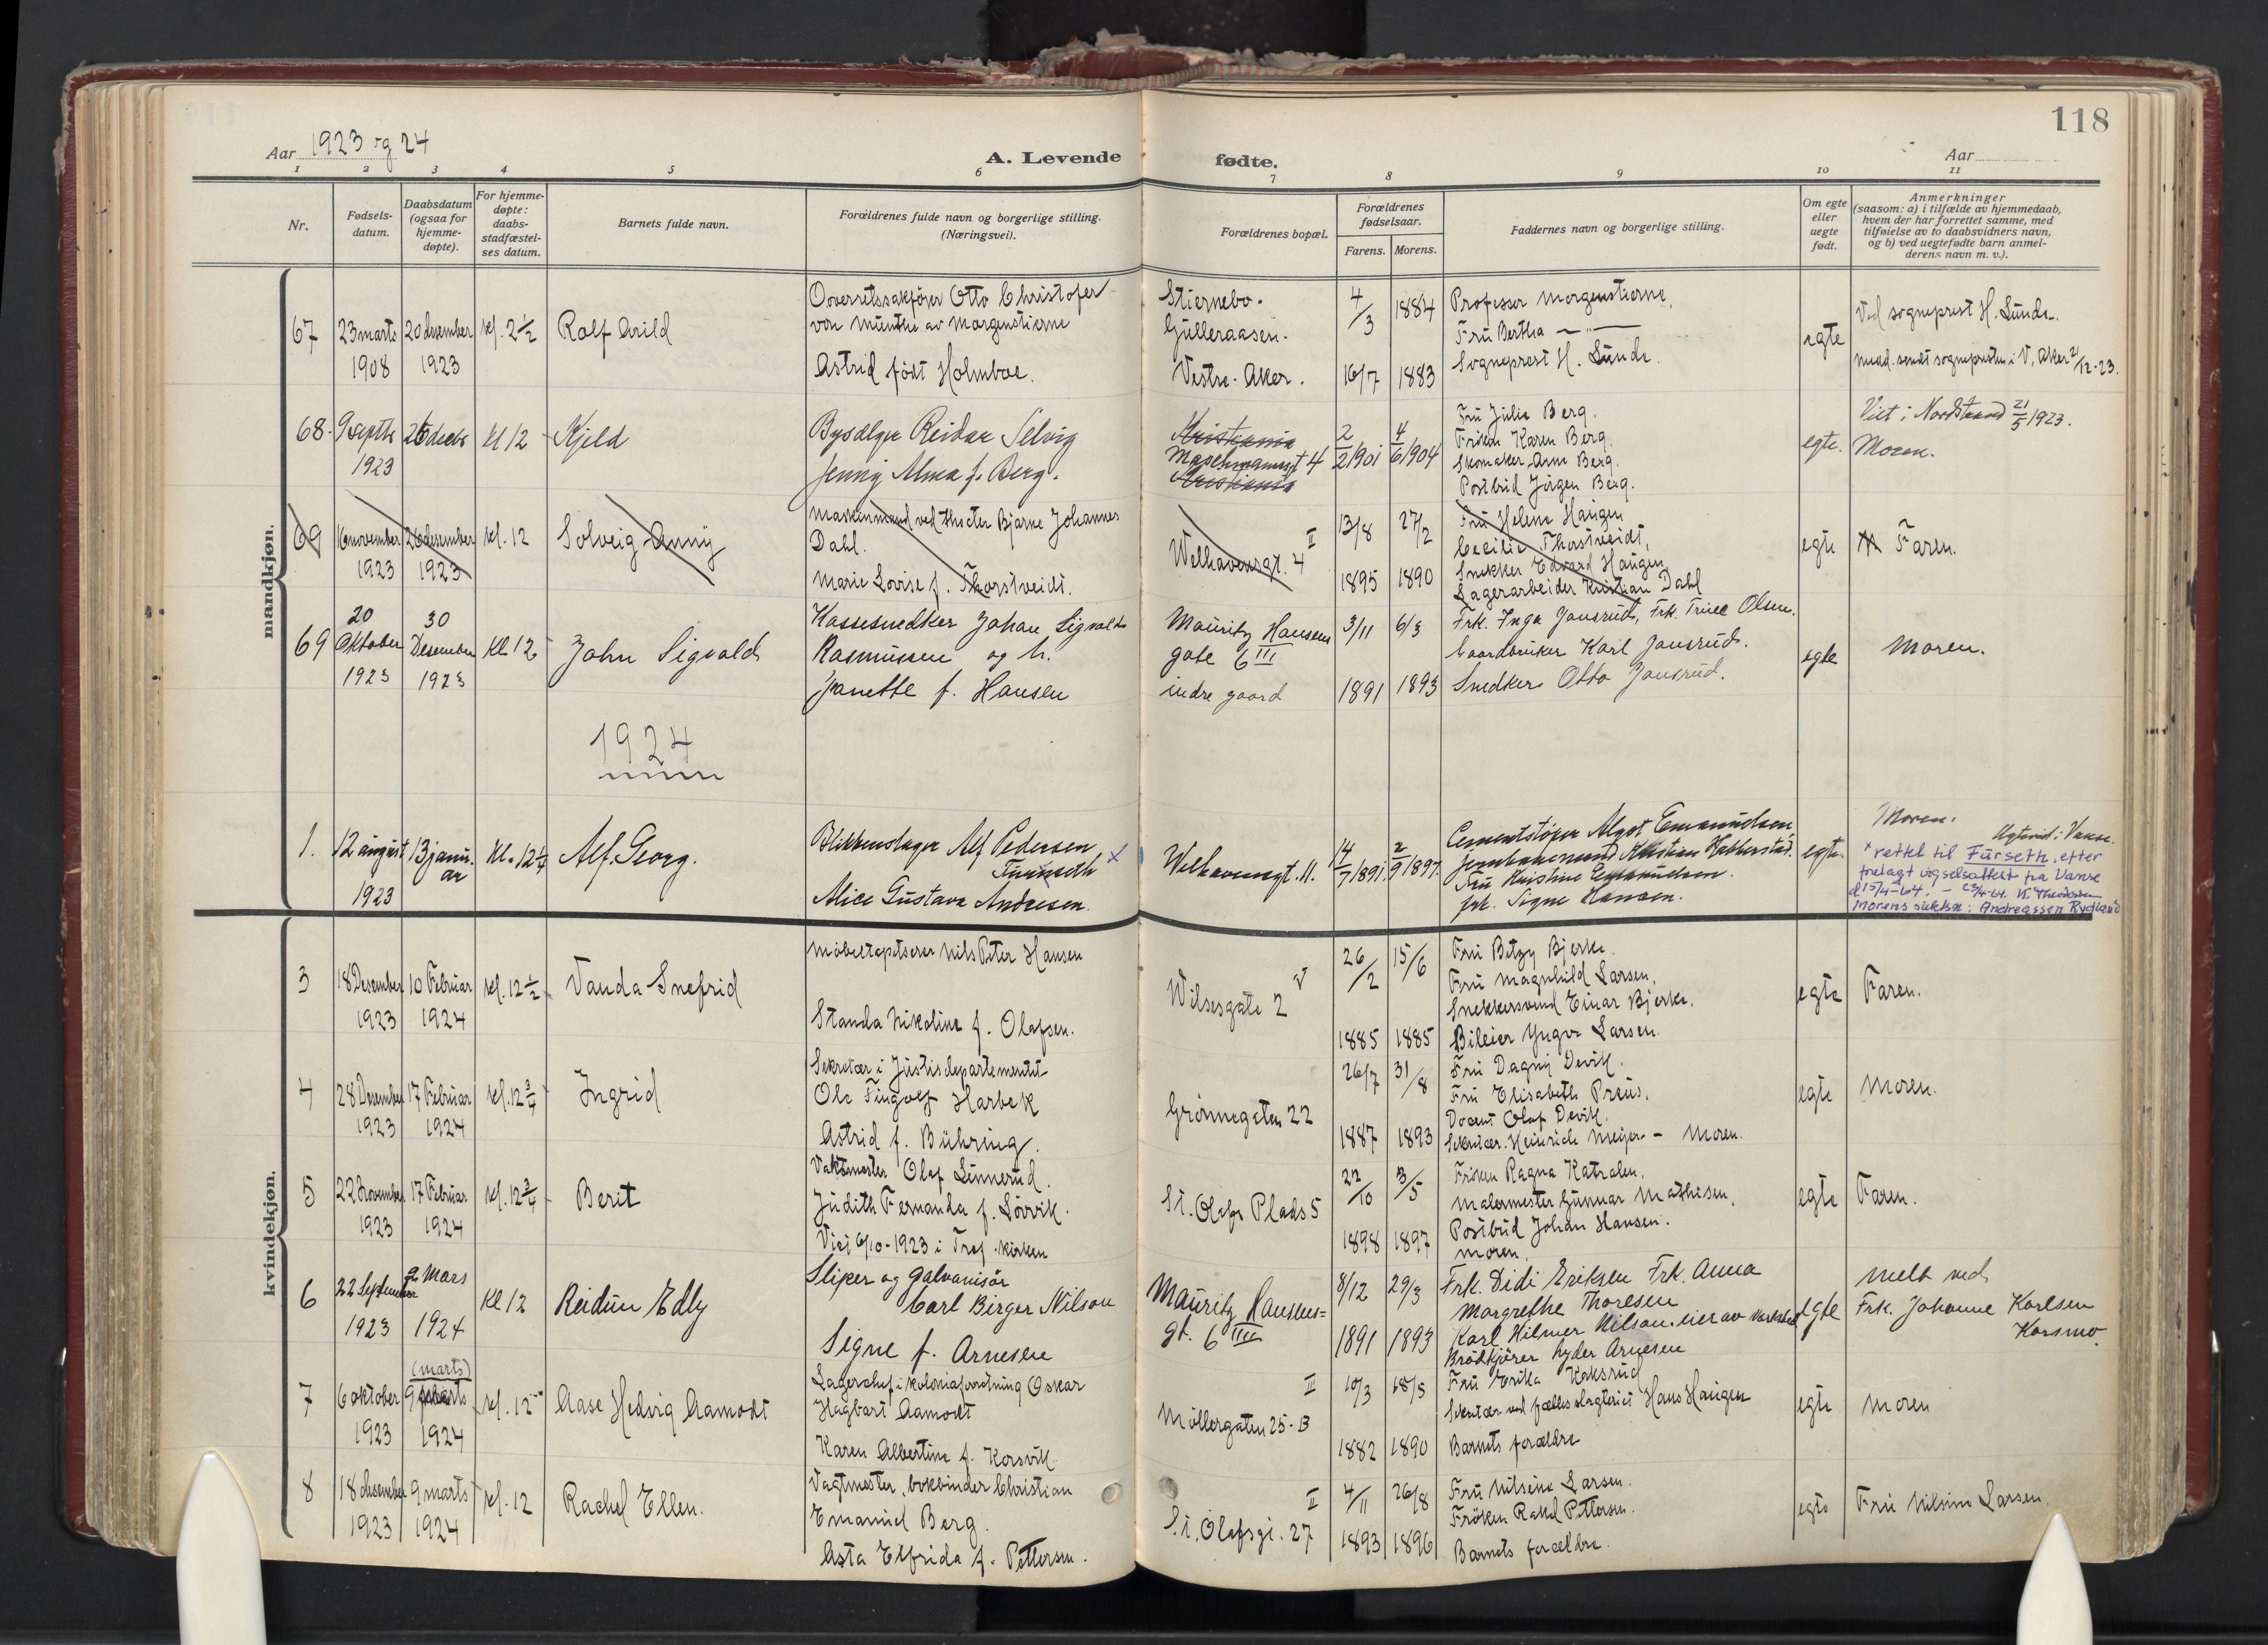 118
Aar 1923 og 24
A. Levende fødte.
Aar
1 2 3 4 5 6 7 8 9 10 11
Nr.
Fødsels-
datum.
Daabsdatum
(ogsaa for
hjemme-
døpte).
For hjemme-
døpte:
daabs-
stadfæstel-
ses datum.
Barnets fulde navn.
Forældrenes fulde navn og borgerlige stilling.
(Næringsvei).
Forældrenes bopæl.
Forældrenes
fødselsaar.
Farens. Morens.
Faddernes navn og borgerlige stilling.
Om egte
eller
uegte
født.
Anmerkninger
(saasom: a) i tilfælde av hjemmedaab,
hvem der har forrettet samme, med
tilføielse av to daabsvidners navn,
og b) ved uegtefødte barn anmel-
derens navn m. v.).
mandkjøn.
67
23 marts
1908
20 desember
1923
kl. 2 1/2
Rolf Arild
Overretssakfører Otto Christofer
von Munthe av Morgenstierne
Astrid født Holmboe.
Stjernebo.
Gulleraasen.
Vestre. Aker.
4/3
16/7
1884
1883
Professer Morgenstierne,
Fru Bertha — " —
Sogneprest H. Lunde.
egte
Ved sogneprest H. Lunde.
medd. sendt sognepresten i V. Aker 2/12-23.
68.
9 septbr
1923
26 decbr
kl 12
Kjeld
Bysælger Reidar Selvig
Jenny Alma f. Berg.
Kristiania
4
Kristiania
2/2 1901
4/6 1904
Fru Julie Berg.
Frøken Karen Berg.
Skomaker Arne Berg.
Postbud Jørgen Berg.
egte.
Viet i Nordstrand 21/5 1923.
Moren.
69
16 november
1923
26 desember
1923
kl. 12
Solveig Anny
Maskinmand ved theater Bjarne Johannes
Dahl.
Marie Lovise f. Thorstveidt.
Welhavensgt. 4 II
13/8
1895
27/2
1890
Fru Helene Haugen
Cecilie Thorstveidt,
Snekker Edvard Haugen
Lagerarbeider Kristian Dahl
egte
Faren.
69
20
Oktober
1923
30
Desember
1923
Kl 12
John Sigvald
Kassesnedker Johan Sigvald
Rasmussen og h.
Janette f. Hansen
Mauritz Hansens
gate 6 III
indre gaard
3/11
1891
6/3
1893
Frk. Inga Jansrud, Frk. Trine Olsen.
Gaardbruker Karl Jansrud.
Snedker Otto Jansrud.
egte
Moren.
1924
1.
12 august
1923
13 janu-
ar
Kl. 12 1/4
Alf Georg.
Blikkenslager Alf Pedersen
Furuseth x
Alice Gustava Andresen
Welhavensgt. 11.
14/7 1891.
2/9 1897.
Cementstøper Algot Emanuelsen
Jernbanemand Kristian Habberstad.
Fru Kristine Emanuelsen.
frk. Signe Hansen.
egte.
Moren.
Agterud i Vanse.
x rettet til Furseth, efter
fremlagt vigselsattest fra Vanse
d 15/4-64.
Morens slektsn: Andreassen Rydland
kvindekjøn.
3
18 Desember
1923
10 Februar
1924
kl. 12 1/2
Vanda Snefrid
Møbeltapetserer Nils Peter Hansen
Standa Nikoline f. Olafsen.
Wilsesgate 2 V
26/2
1885
15/6
1885
Fru Betzy Bjerke.
Fru Magnhild Larsen,
Snekkersvend Einar Bjerke.
Bileier Yngve Larsen.
egte
Faren.
4
28 Desember
1923
17 Februar
1924
kl. 12 3/4
Ingrid
Sekretær i Justisdepartementet
Ole Fingolf Harbek
Astrid f. Bühring.
Grønnegaten 22
26/7
1887
31/8
1893
Fru Dagny Devik.
Fru Elisabeth Preus.
Docent Olaf Devik.
Sekretær. Heinrich Meyer - Moren.
egte
Moren.
5
22 November
1923
17 Februar
1924
kl. 12 3/4
Berit
Vaktmester Olaf Linnerud.
Judith Fernanda f. Løvvik.
Viet 6/10-1923 i Tref. kirken
St. Olafs Plads 5
22/10
1898
3/5
1897
Frøken Ragna Katralen,
Malermester Gunnar Mathisen,
Postbud Johan Hansen.
Moren.
egte
Faren.
6
22 September
1923
2 Mars
1924
Kl 12
Reidun Edly
Sliper og galvanisør
Carl Birger Nilson
Signe f. Arnesen
Mauritz Hansens=
gt. 6 III
8/12
1891
29/3
1893
Frk. Didi Eriksen Frk. Anna
Margrethe Thoresen
Karl Hilmer Nilson. eier av verksted
Brødkjører Lyder Arnesen
egte
Melt ved
Frk. Johanne Karlsen
Korsmo
7
6 oktober
1923
(marts)
9 marts
1924
kl. 12
Aase Hedvig Aamodt
Lagerchef i kolonialforretning Oskar
Hagbart Aamodt
Karen Albertine f. Korsvik
Møllergaten 25-B II
10/3
1882
18/5
1890
Fru Erika Koksrud
Sekretær ved fælles slagteriet Hans Haugen
Barnets forældre
egte
Moren
8
18 desember
1923
9 marts
1924
kl. 12
Rachel Ellen.
Vagtmester, bokbinder Christian
Emanuel Berg.
Asta Elfrida f. Pettersen.
St. Olafsgt. 27 II
4/11
1893
26/8
1896
Fru Nilsine Larsen.
Frøken Rakel Pettersen.
Barnets forældre.
egte
Fru Nilsine Larsen.